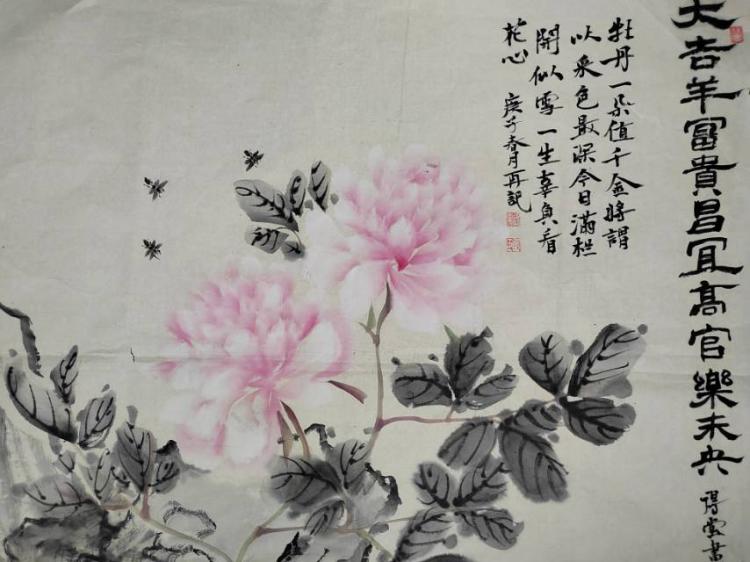 大吉羊富貴昌宜高官樂未央
牡丹一朵值千金將謂
从来色最深今日滿栏
開似雪一生辜負看
花心 庚子春月再記